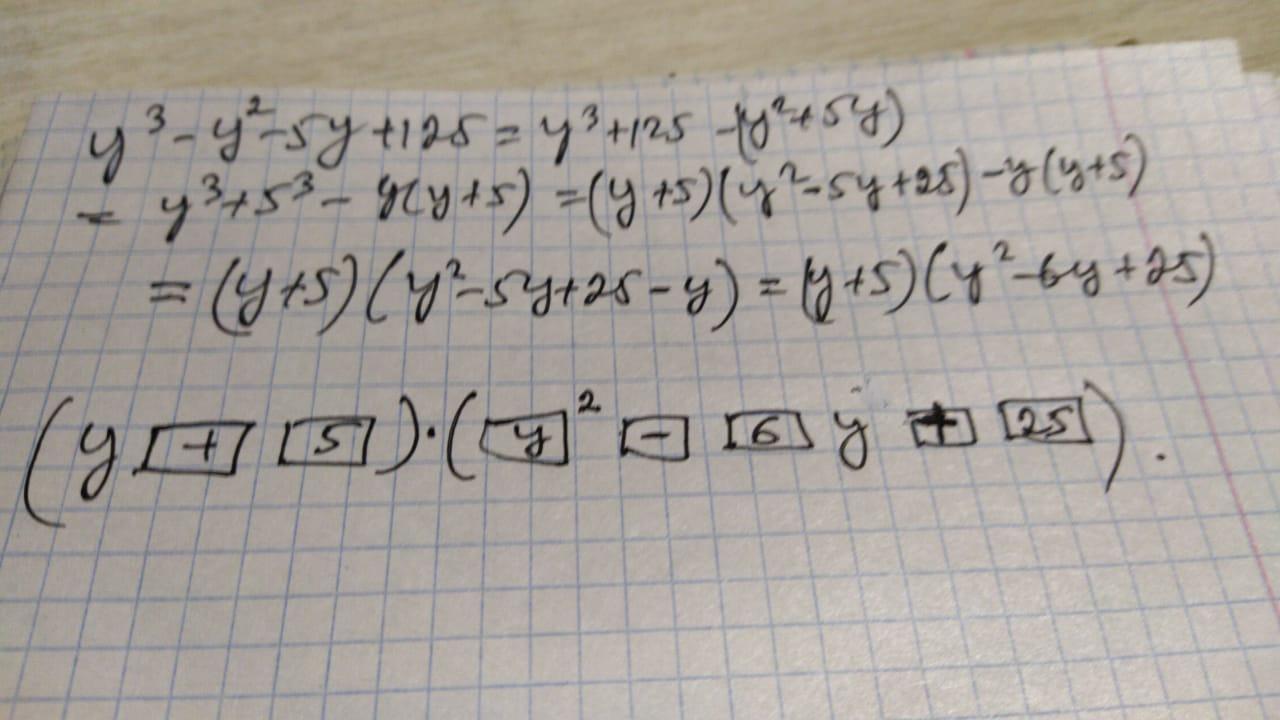 y³ - y² - 5y + 125 = y³ + 125 - (y² + 5y)
= y³ + 5³ - y(y + 5) = (y + 5)(y² - 5y + 25) - y(y + 5)
= (y + 5)(y² - 5y + 25 - y) = (y + 5)(y² - 6y + 25)
(y + 5) · (y² - 6 y + 25).